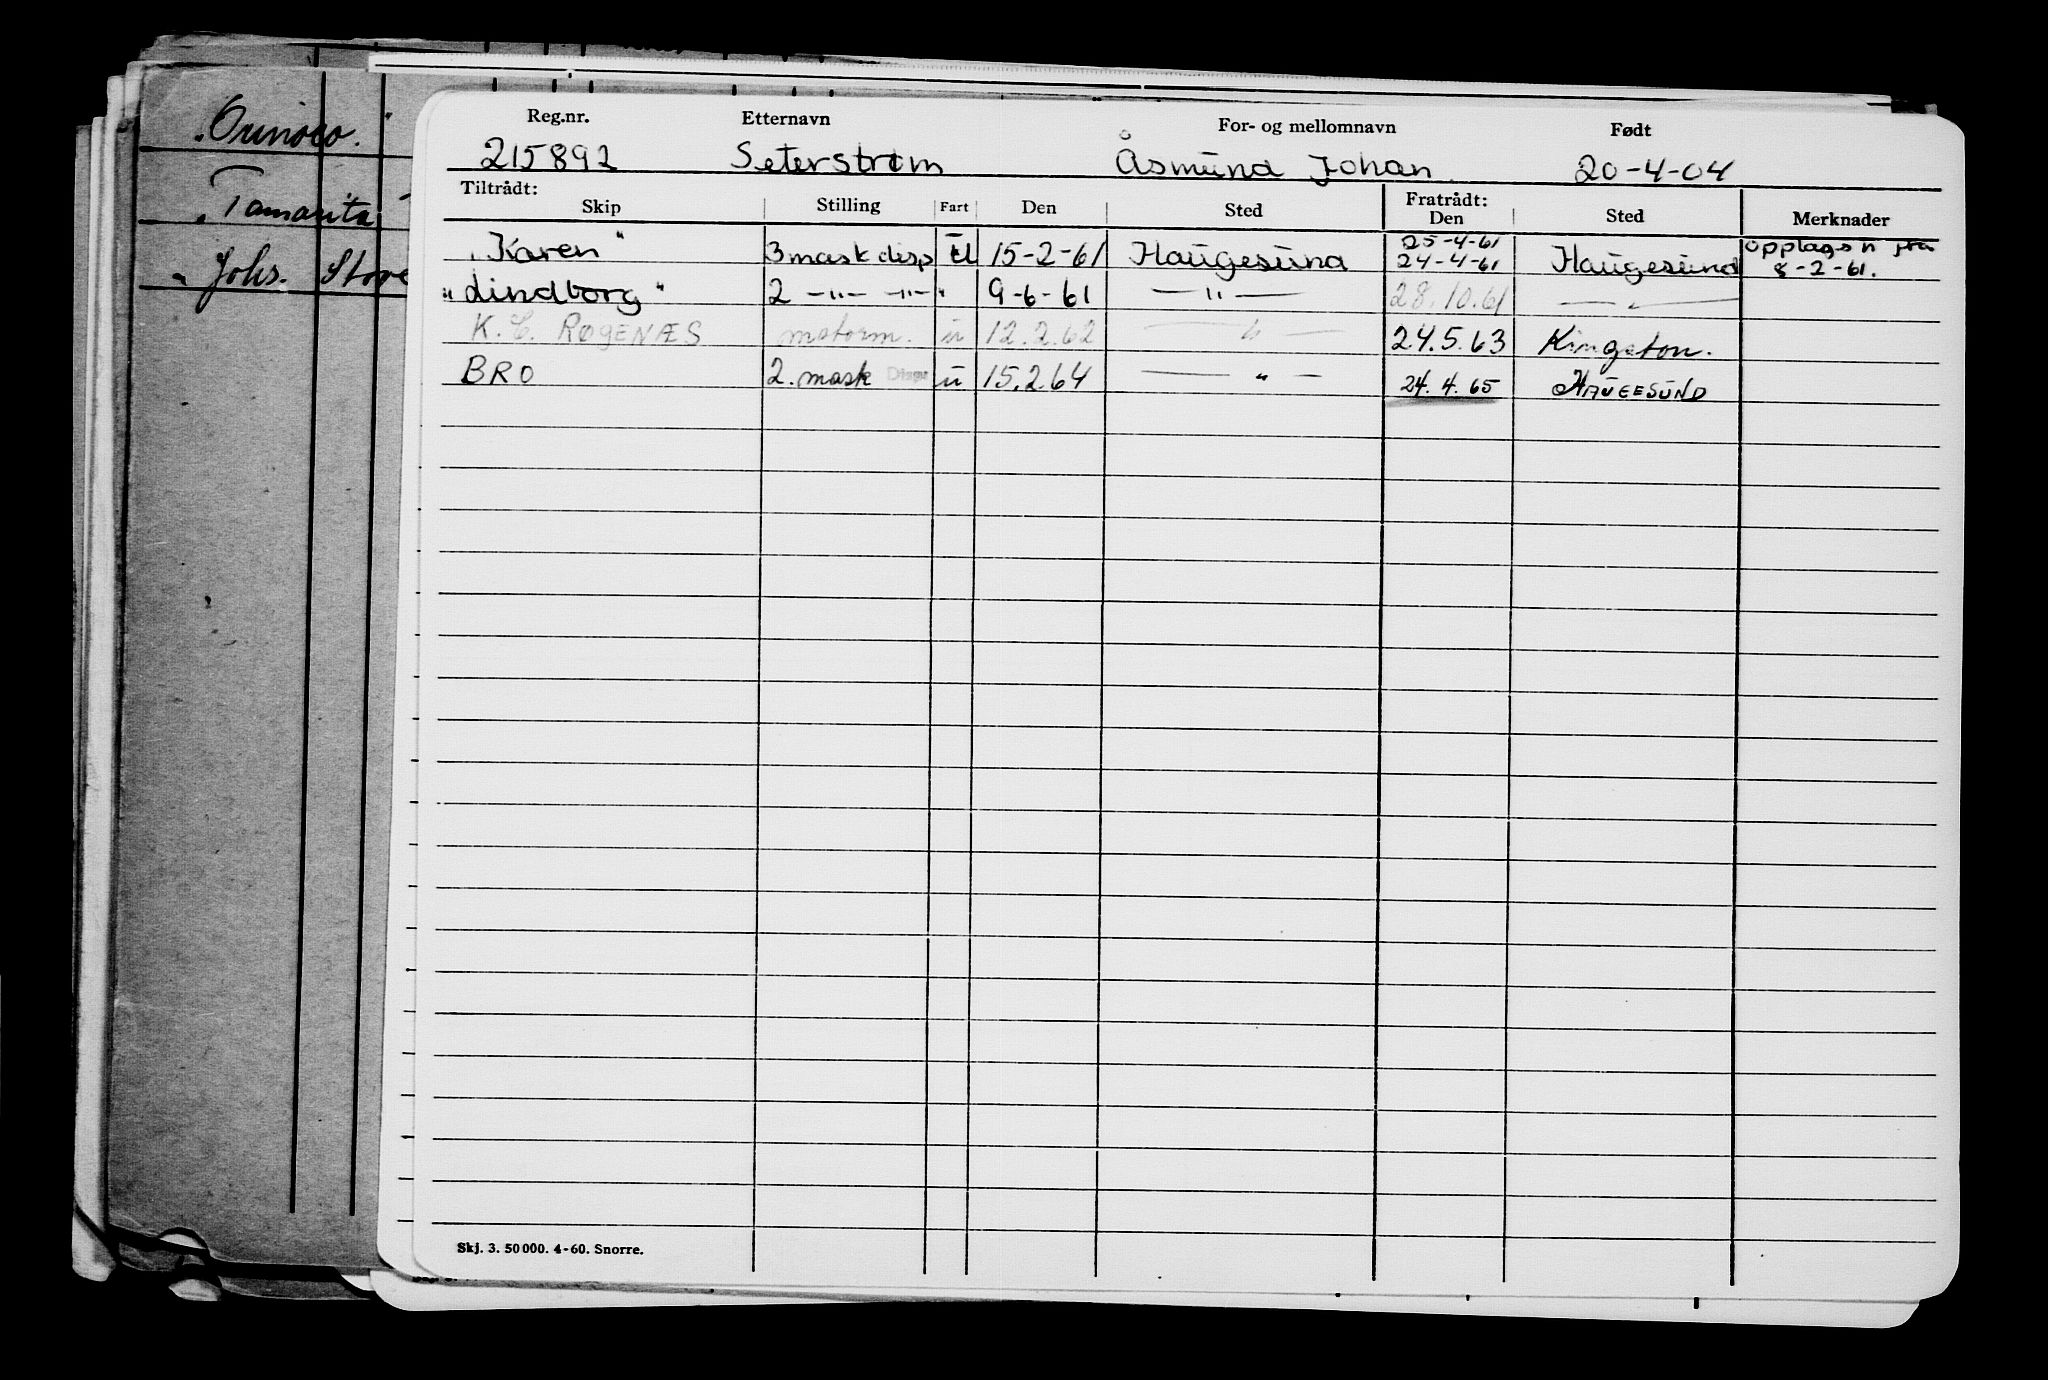 "Orinoco."
"Tamarita
"Johs. Stove
Reg.nr. Etternavn For- og mellomnavn Født
215892 Seterstrøm Åsmund Johan 20-4-04
Tiltrådt: Fratrådt:
Skip Stilling Fart Den Sted Den Sted Merknader
25-4-61 opplags
"Karen" 3 mask disp 15-2-61 Haugesund 24-4-61 Haugesund 8-2-61.
"Lindborg" 2 -"- -"- " 9-6-61 -"- 28.10.61 -"-
K. C. ROGENÆS motorm. u 12.2.62 -"- 24.5.63 Kingston.
BRO 2. mask Disp u 15.2.64 -"- 24.4.65 HAUGESUND
Skj. 3. 50 000. 4-60. Snorre.